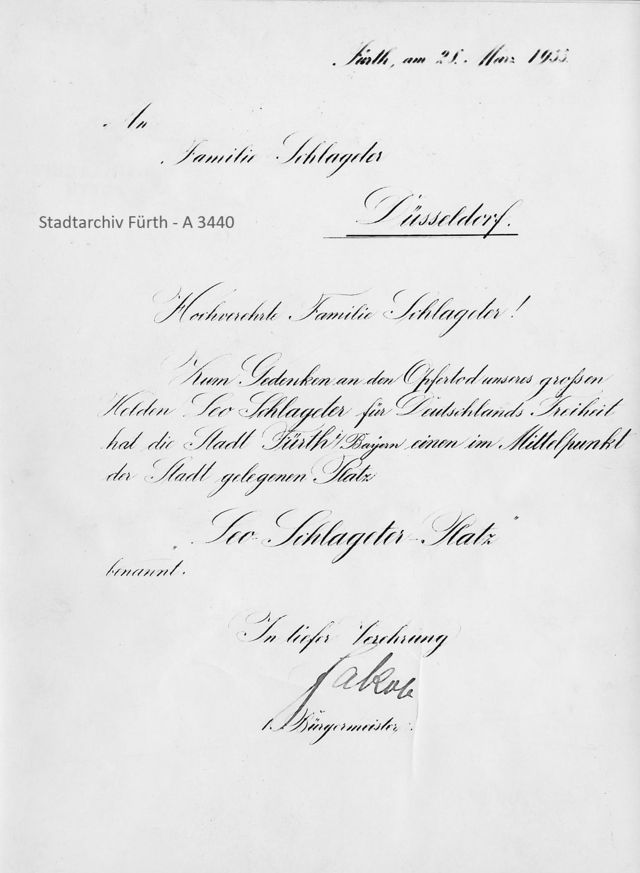 Fürth, am 28. März 1933.
An
Familie Schlageter
Stadtarchiv Fürth - A 3440
Düsseldorf.
Hochverehrte Familie Schlageter!
Zum Gedenken an den Opfertod unseres grossen
Helden Leo Schlageter für Deutschlands Freiheit
hat die Stadt Fürth i/Bayern einen im Mittelpunkt
der Stadt gelegenen Platz
„Leo-Schlageter-Platz"
benannt.
In tiefer Verehrung
Jakob
1. Bürgermeister.